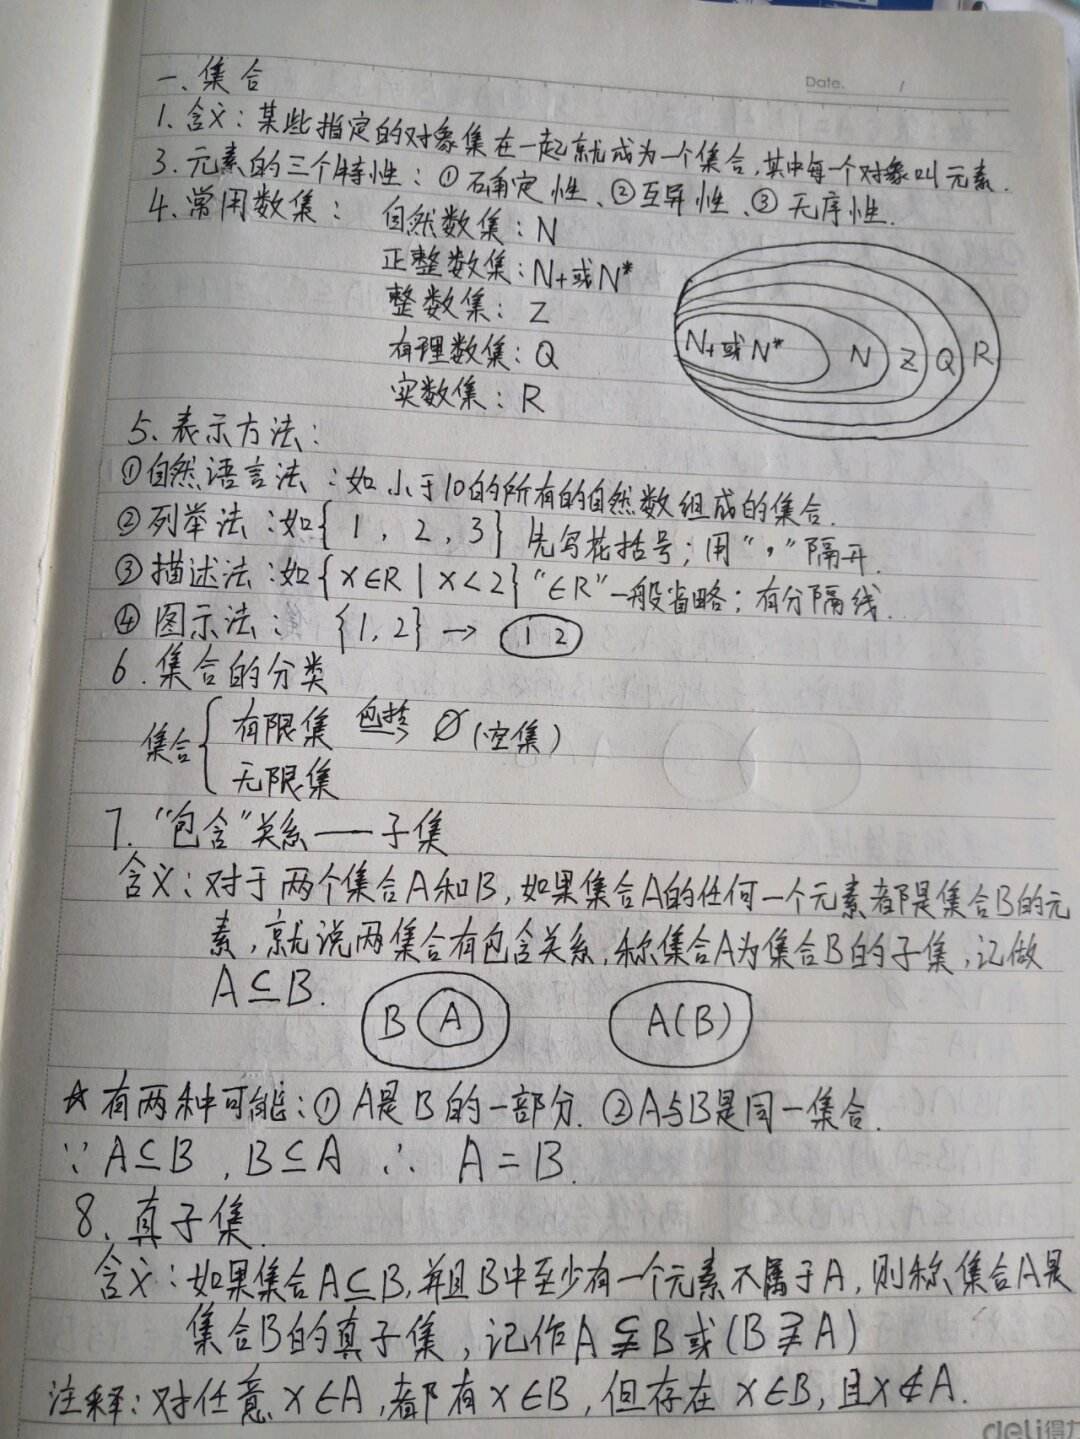 Date. /
一、集合
1、含义：某些指定的对象集在一起就成为一个集合，其中每一个对象叫元素.
3.元素的三个特性：①确定性、②互异性、③无序性.
4、常用数集：自然数集：N
正整数集：N+或N*
整数集：Z
有理数集：Q
实数集：R
N+或N* N Z Q R
5、表示方法：
①自然语言法：如小于10的所有的自然数组成的集合.
②列举法：如{1，2，3}先写花括号；用“，”隔开.
③描述法：如{x∈R|x<2}“∈R”一般省略；有分隔线.
④图示法：{1,2}→ 1 2
6.集合的分类
集合{有限集 包括→ ∅(空集)
无限集
7.“包含”关系——子集
含义：对于两个集合A和B，如果集合A的任何一个元素都是集合B的元
素，就说两集合有包含关系，称集合A为集合B的子集，记做
A⊆B.
B A A(B)
☆有两种可能：①A是B的一部分.②A与B是同一集合.
∵A⊆B，B⊆A ∴ A=B.
8、真子集.
含义：如果集合A⊆B，并且B中至少有一个元素不属于A，则称集合A是
集合B的真子集，记作A⫋B或(B⫌A)
注释：对任意x∈A，都有x∈B，但存在x∈B，且x∉A.
deli得力